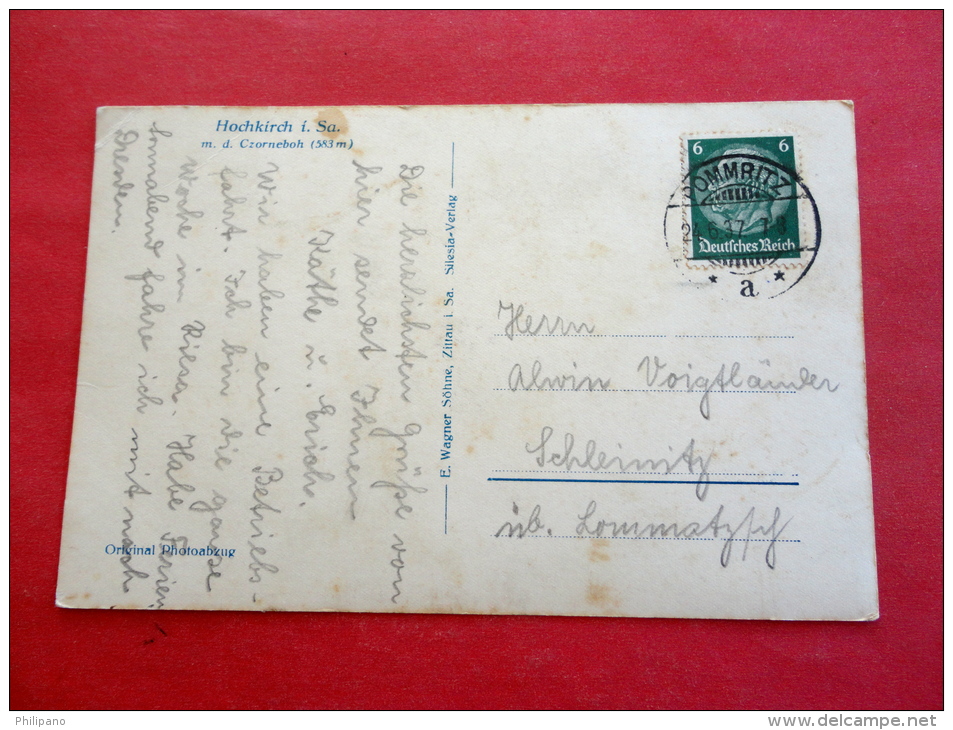 Hochkirch i. Sa.
m. d. Czorneboh (583 m)
Die herzlichsten Grüße von
hier sendet Ihnen
Käthe u. Erich.
Wir haben eine Betriebs-
fahrt. Ich bin die ganze
Woche in Riesa. Habe Ferien,
Sonnabend fahre ich mit nach
Dresden.
Original Photoabzug
E. Wagner Söhne, Zittau i. Sa. Silesia-Verlag
6 6
Deutsches Reich
OMMRITZ
24.6.37. 7-8
* a *
Herrn
Alwin Voigtländer
Schleinitz
üb. Lommatzsch
Philipano
delcampe.net